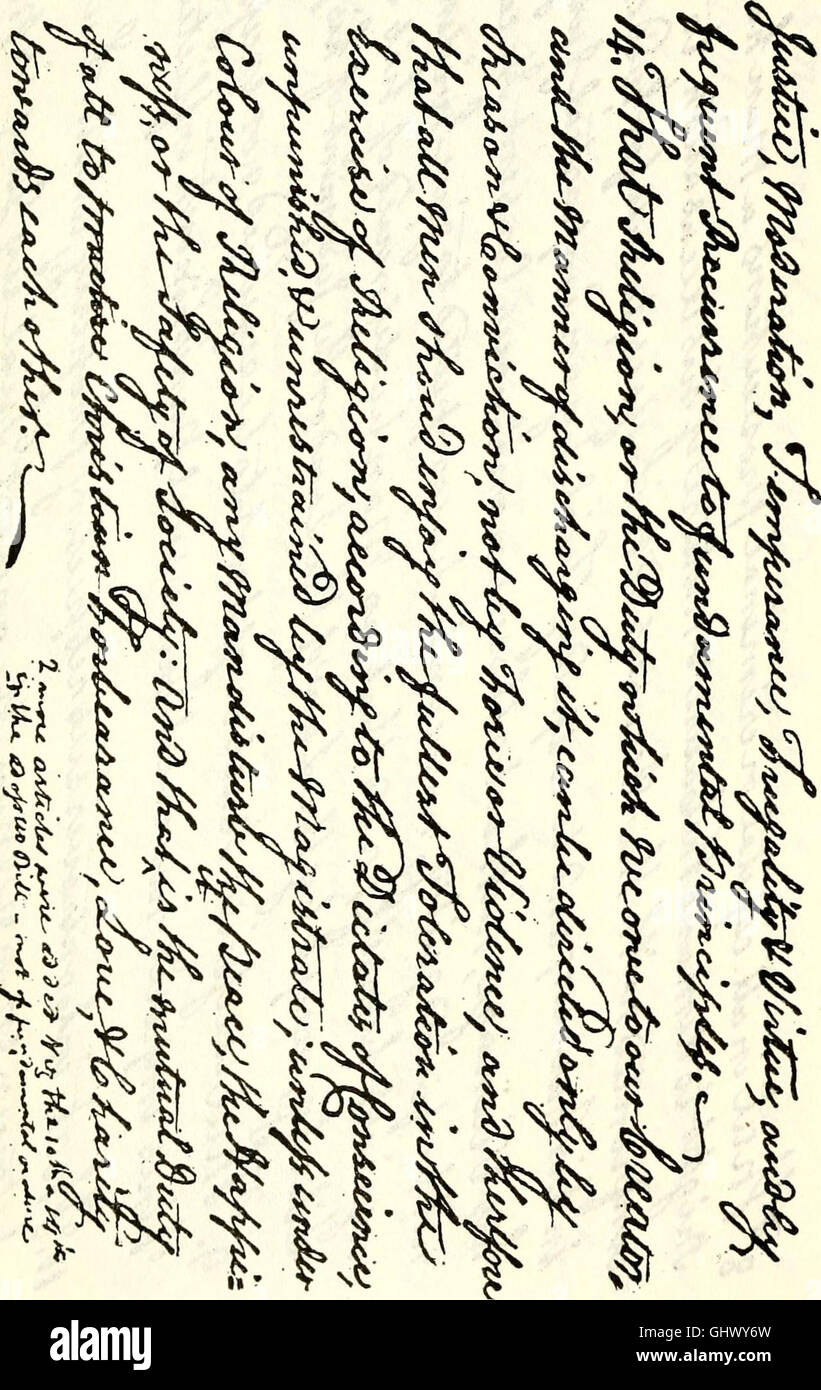 Justice, Moderation, Temperance, Frugality & Virtue, and by
frequent Recurrence to fundamental Principles.
14. That Religion, or the Duty which we owe to our Creator,
and the Manner of discharging it, can be directed only by
Reason & Conviction, not by Force or Violence; and therfore
that all Men shoud enjoy the fullest Toleration in the
Exercise of Religion, according to the Dictates of Conscience,
unpunished & unrestrained by the Magistrate, unless under
Colour of Religion, any Man disturb the Peace, the Happi=
ness, or the Safety of Society: And that it is the mutual Duty
of all to practice Christian Forbearance, Love, & Charity
towards each other.
2 more articles were added viz the 10th & 14th
in the adopted Bill - not of fundamental nature
alamy
Image ID: GHWY6W
www.alamy.com